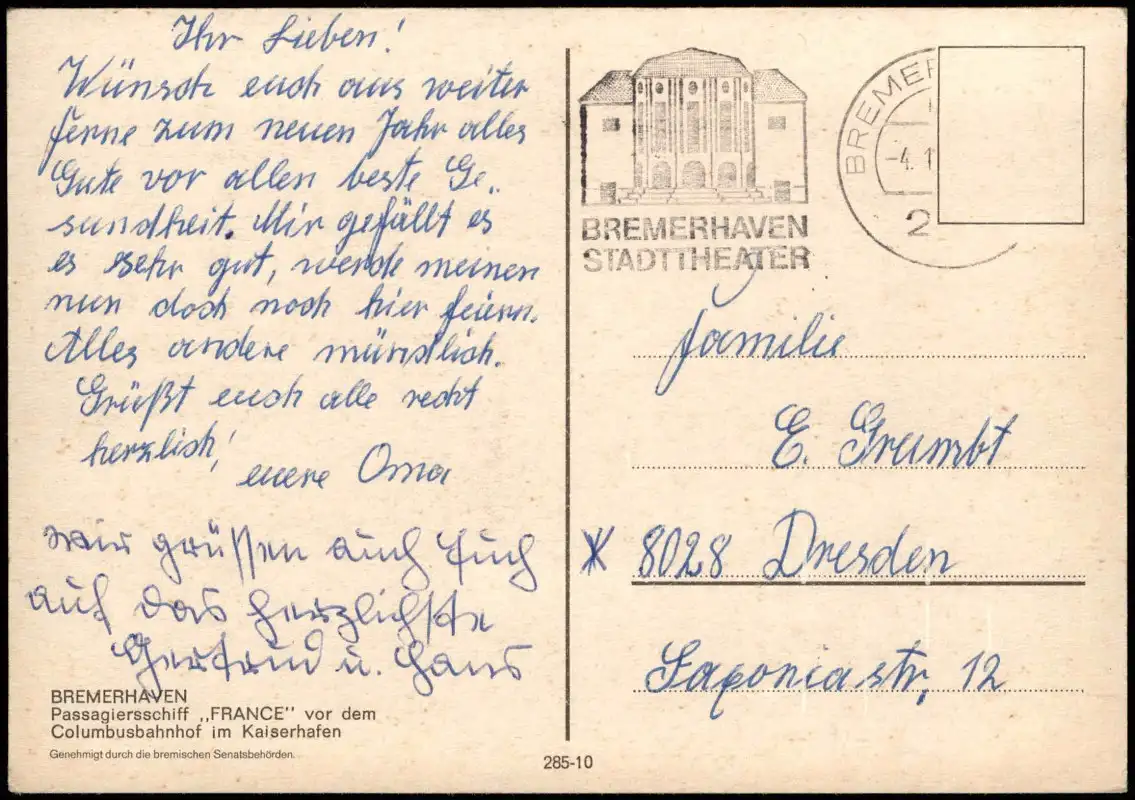 Ihr Lieben!
Wünsch euch aus weiter
ferne zum neuen Jahr alles
Gute vor allen beste Ge„
sundheit. Mir gefällt es
es sehr gut, werde meinen
nun doch noch hier feiern.
Alles andere mündlich.
Grüßt euch alle recht
herzlich!
euere Oma
Wir grüssen auch Euch
auf das herzlichste
Gertrud u. Hans
BREMERHAVEN
Passagiersschiff „FRANCE" vor dem
Columbusbahnhof im Kaiserhafen
Genehmigt durch die bremischen Senatsbehörden.
285-10
BREMERHAVEN
STADTTHEATER
BREMER
-4. 1
2
Familie
E. Grumbt
8028 Dresden
Saxoniastr. 12